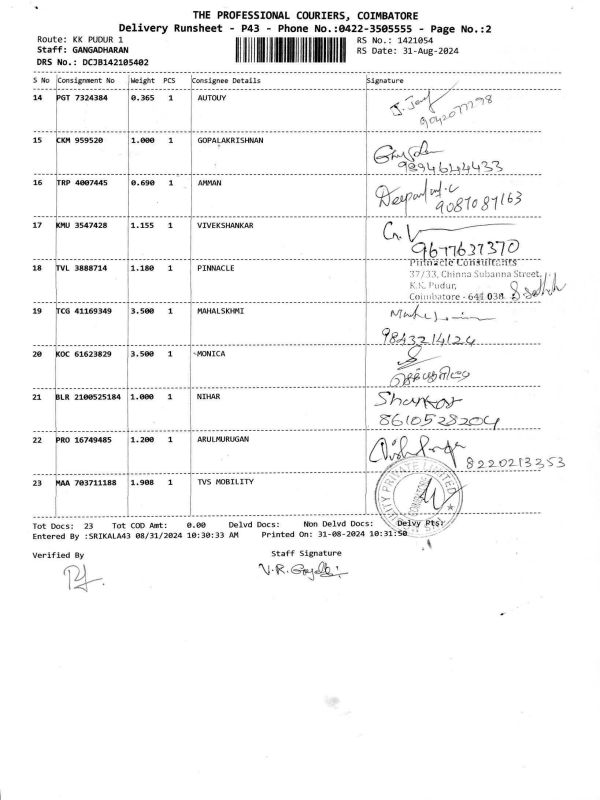 THE PROFESSIONAL COURIERS, COIMBATORE
Delivery Runsheet - P43 - Phone No.:0422-3505555 - Page No.:2
Route: KK PUDUR 1 RS No.: 1421054
Staff: GANGADHARAN RS Date: 31-Aug-2024
DRS No.: DCJB142105402
S No Consignment No Weight PCS Consignee Details Signature
14 PGT 7324384 0.365 1 AUTOUY
9042077298
15 CKM 959520 1.000 1 GOPALAKRISHNAN
9894644433
16 TRP 4007445 0.690 1 AMMAN
9087087163
17 KMU 3547428 1.155 1 VIVEKSHANKAR
9677637370
18 TVL 3888714 1.180 1 PINNACLE
Pinnacle Consultants
37/33, Chinna Subanna Street,
K.K. Pudur,
Coimbatore - 641 038
19 TCG 41169349 3.500 1 MAHALSKHMI
9843214124
20 KOC 61623829 3.500 1 MONICA
21 BLR 2100525184 1.000 1 NIHAR
Shankar
8610528204
22 PRO 16749485 1.200 1 ARULMURUGAN
8220213353
23 MAA 703711188 1.908 1 TVS MOBILITY
PRIVATE LIMITED
Tot Docs: 23 Tot COD Amt: 0.00 Delvd Docs: Non Delvd Docs: Delvy Pts:
Entered By :SRIKALA43 08/31/2024 10:30:33 AM Printed On: 31-08-2024 10:31:50
Verified By Staff Signature